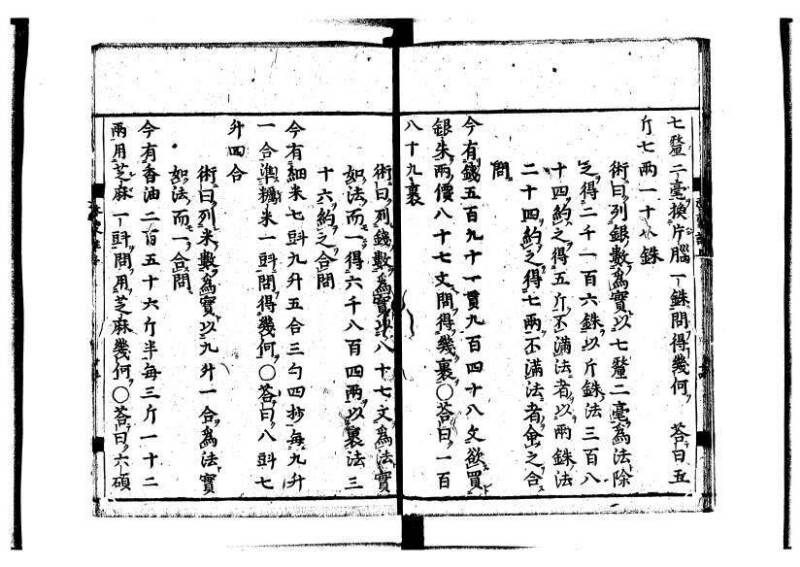 七釐二毫換片腦一銖問得幾何　荅曰五
斤七兩一十八銖
術曰列銀數爲實以七釐二毫爲法除
之得二千一百六銖以斤銖法三百八
十四約之得五斤不滿法者以兩銖法
二十四約之得七兩不滿法者命之合
問
今有錢五百九十一貫九百四十八文欲買
銀朱兩價八十七文問得幾裹○荅曰一百
八十九裹
術曰列錢數爲實以八十七文爲法實
如法而一得六千八百四兩以裹法三
十六約之合問
今有細米七㪷九升五合三勺四抄每九升
一合準糯米一㪷問得幾何○荅曰八㪷七
升四合
術曰列米數爲實以九升一合爲法實
如法而一合問
今有香油二百五十六斤半每三斤一十二
兩用芝麻一㪷問用芝麻幾何○荅曰六碩